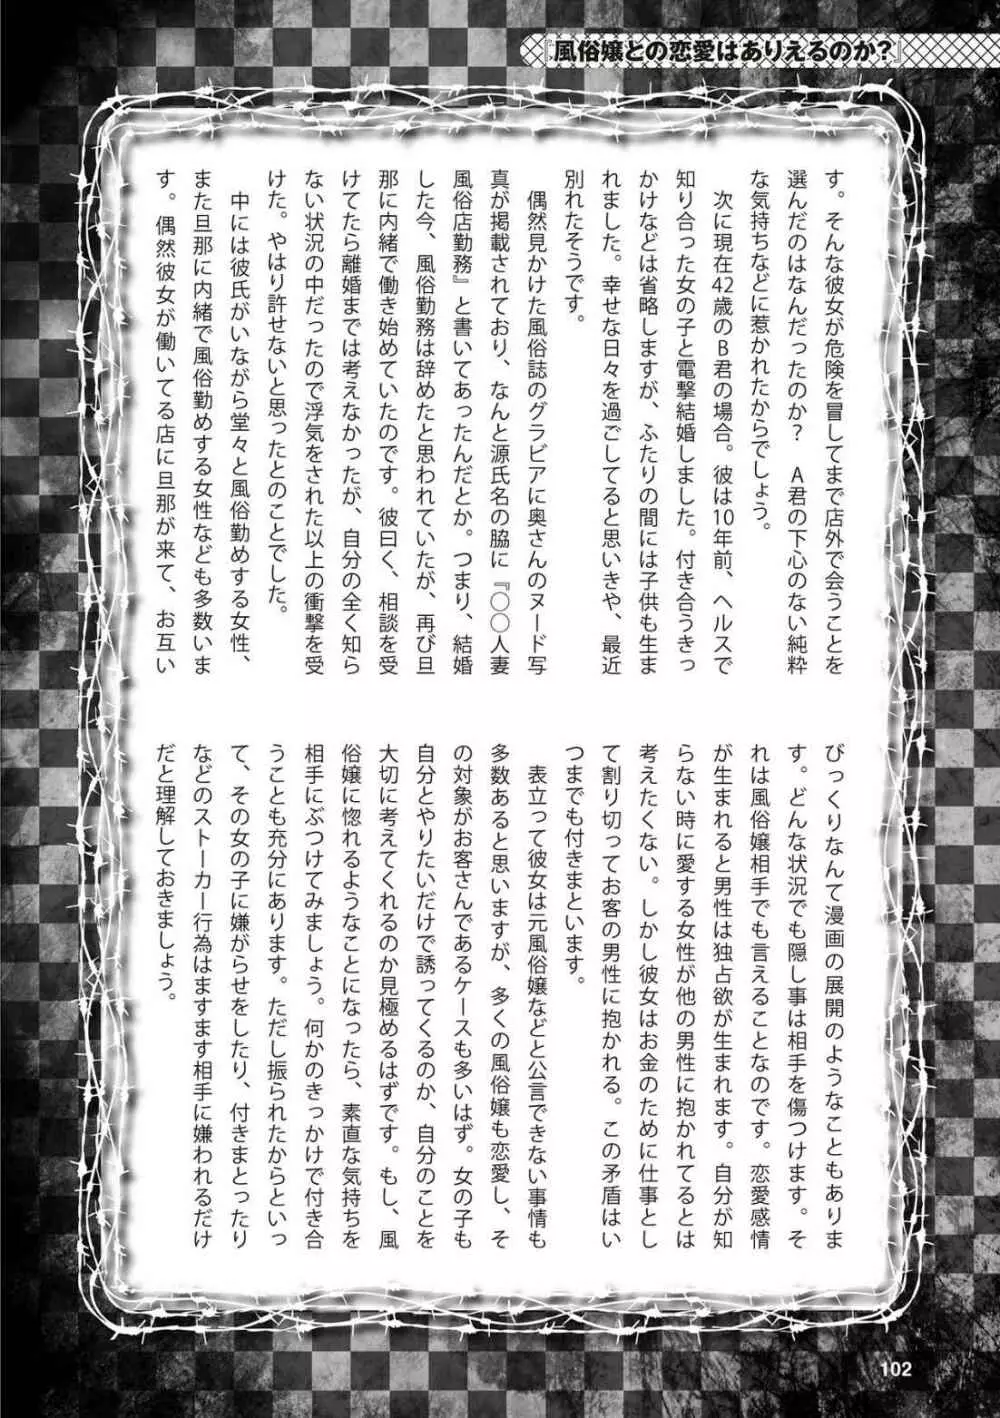 『風俗嬢との恋愛はありえるのか?』
す。そんな彼女が危険を冒してまで店外で会うことを
選んだのはなんだったのか?　A君の下心のない純粋
な気持ちなどに惹かれたからでしょう。
　次に現在42歳のB君の場合。彼は10年前、ヘルスで
知り合った女の子と電撃結婚しました。付き合うきっ
かけなどは省略しますが、ふたりの間には子供も生ま
れました。幸せな日々を過ごしてると思いきや、最近
別れたそうです。
　偶然見かけた風俗誌のグラビアに奥さんのヌード写
真が掲載されており、なんと源氏名の脇に『〇〇人妻
風俗店勤務』と書いてあったんだとか。つまり、結婚
した今、風俗勤務は辞めたと思われていたが、再び旦
那に内緒で働き始めていたのです。彼曰く、相談を受
けてたら離婚までは考えなかったが、自分の全く知ら
ない状況の中だったので浮気をされた以上の衝撃を受
けた。やはり許せないと思ったとのことでした。
　中には彼氏がいながら堂々と風俗勤めする女性、
また旦那に内緒で風俗勤めする女性なども多数いま
す。偶然彼女が働いてる店に旦那が来て、お互い
びっくりなんて漫画の展開のようなこともありま
す。どんな状況でも隠し事は相手を傷つけます。そ
れは風俗嬢相手でも言えることなのです。恋愛感情
が生まれると男性は独占欲が生まれます。自分が知
らない時に愛する女性が他の男性に抱かれてるとは
考えたくない。しかし彼女はお金のために仕事とし
て割り切ってお客の男性に抱かれる。この矛盾はい
つまでも付きまといます。
　表立って彼女は元風俗嬢などと公言できない事情も
多数あると思いますが、多くの風俗嬢も恋愛し、そ
の対象がお客さんであるケースも多いはず。女の子も
自分とやりたいだけで誘ってくるのか、自分のことを
大切に考えてくれるのか見極めるはずです。もし、風
俗嬢に惚れるようなことになったら、素直な気持ちを
相手にぶつけてみましょう。何かのきっかけで付き合
うことも充分にあります。ただし振られたからといっ
て、その女の子に嫌がらせをしたり、付きまとったり
などのストーカー行為はますます相手に嫌われるだけ
だと理解しておきましょう。
102